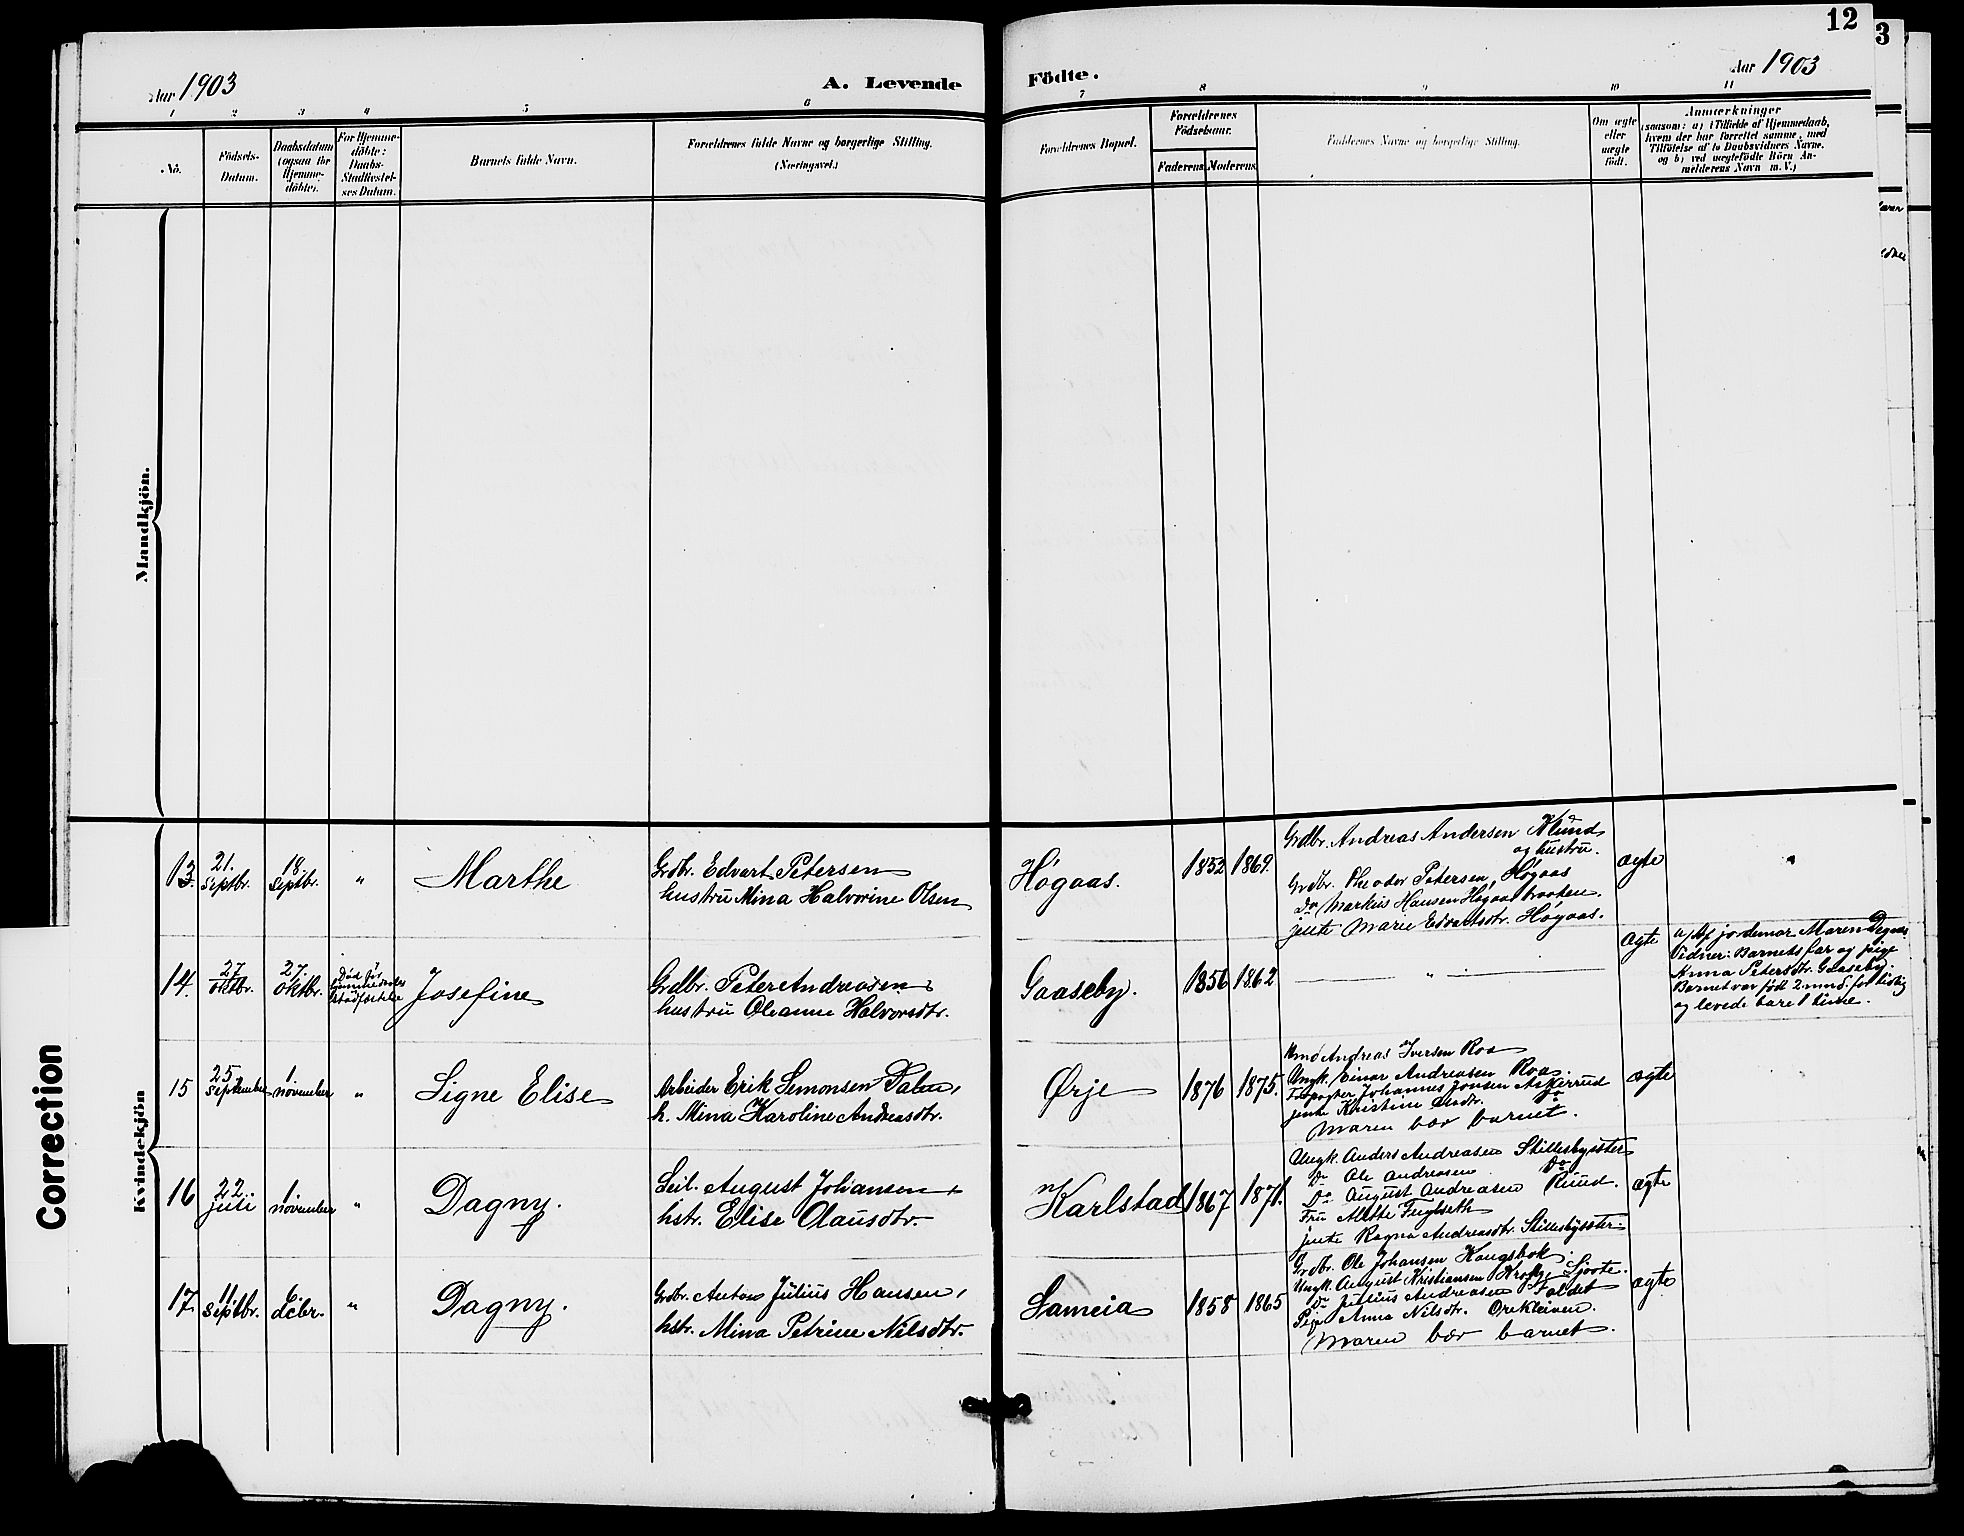 12
3
Aar 1903
A. Levende
Födte.
Aar 1903
1 2 3 4 5 6 7 8 9 10 11
No.
Födsels-
Datum.
Daabsdatum
(ogsaa for
Hjemme-
döbte).
For Hjemme-
döbte:
Daabs-
Stadfæstel-
ses Datum.
Barnets fulde Navn.
Forældrenes fulde Navne og borgerlige Stilling.
(Næringsvei.)
Forældrenes Bopæl.
Forældrenes
Födselsaar.
Faderens Moderens
Faddernes Navne og borgerlige Stilling.
Om ægte
eller
uægte
födt.
Anmærkninger
(saasom: a) i Tilfælde af Hjemmedaab,
hvem der har forrettet samme, med
Tilföielse af to Daabsvidners Navne,
og b) ved uægtefödte Börn An-
melderens Navn m. V.)
Mandkjön.
Kvindekjön
Correction
13.
21.
Septbr.
18.
Septbr.
"
Marthe
Grdbr. Edvart Petersen
hustru Mina Halvorine Olsen
Høgaas.
1852
1869.
Grdbr. Andreas Andersen Klund
og hustru.
Grdbr. Theodor Petersen, Høgaas
Do Markus Hansen Høgaasbraaten.
jente Marie Edvartsdtr. Høgaas.
ægte
"
14.
27
oktbr.
27.
oktbr.
Død før
Stadfæstelse
Josefine
Grdbr. Peter Andreasen
hustru Oleanne Halvorsdtr.
Gaaseby.
1856
1862
"
ægte
a) Af jordemor Maren Degnæs
Vidner: Barnets far og pige
Anna Petersdtr. Gaaseby.
Barnet var født 2 mnd. for tidlig
og levede bare 1 time.
15
25
September
1
november
"
Signe Elise
Arbeider Erik Semonsen Dalen,
h. Mina Karoline Andreasdtr.
Ørje
1876
1875.
Andreas Iversen Roa
Ungk. Einar Andreasen Roa.
Johannes Jonsen Askerud
jente Kristine
Maren bar barnet.
ægte
16
22
juli
1
november
"
Dagny.
August Johansen
hstr. Elise Olausdtr.
Karlstad
1867
1871.
Ungk. Anders Andreasen Stillesbyseter
Do Ole Andreasen Do
Do August Andreasen Ruud.
Fru Alette Fuglseth
jente Ragna Andreasdtr. Stillesbyseter.
ægte
17
11
Septbr.
6
dcbr.
"
Dagny.
Grdbr. Anton Julius Hansen,
hstr. Mina Petrine Nilsdtr.
Sameia
1858
1865
Grdbr. Ole Johansen Kougsbok.
Ungk. August Kristiansen Sjøvte.
Do Julius Andreasen Faldet
Pige Anna Nilsdtr. Orekleiven.
Maren bar barnet.
ægte